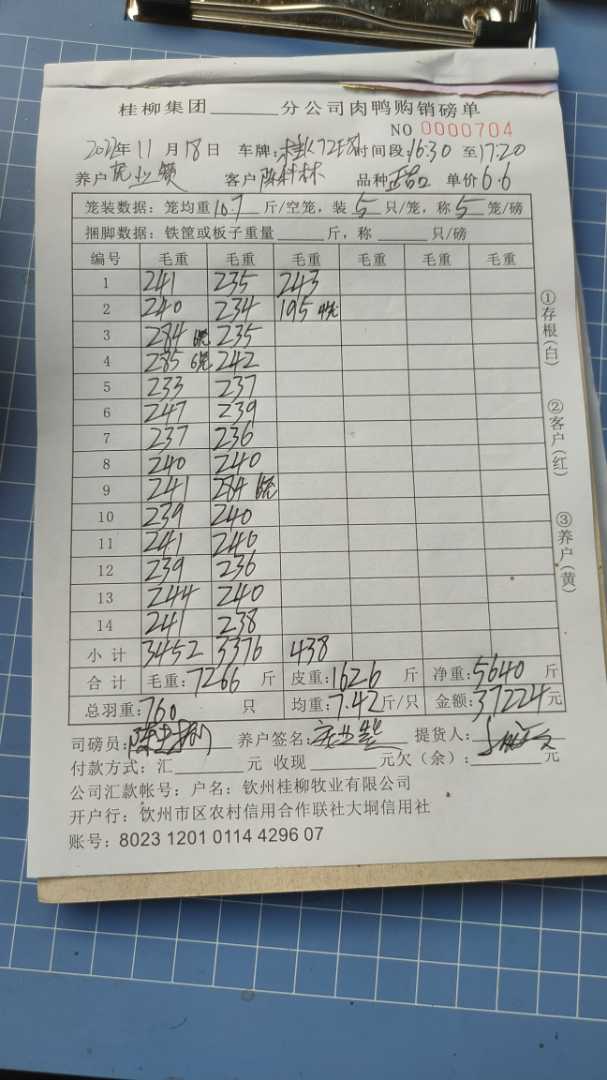 桂柳集团______分公司肉鸭购销磅单
NO 0000704
2022年11月18日 车牌: 时间段:16:30 至17:20
养户 客户陈科林 品种正品 单价6.6
笼装数据:笼均重10.7斤/空笼,装5只/笼,称5笼/磅
捆脚数据:铁筐或板子重量______斤,称______只/磅
编号 毛重 毛重 毛重 毛重 毛重 毛重
1 241 235 243
2 240 234 195 4笼
3 284 6笼 235
4 285 6笼 242
5 233 237
6 247 239
7 237 236
8 240 240
9 241 284 6笼
10 239 240
11 241 240
12 239 236
13 244 240
14 241 238
小计 3452 3376 438
合计 毛重:7266 斤 皮重:1626 斤 净重:5640 斤
总羽重:760 只 均重:7.42斤/只 金额:37224元
司磅员: 养户签名: 提货人:
付款方式:汇______元 收现______元欠(余):______元
公司汇款帐号:户名:钦州桂柳牧业有限公司
开户行:饮州市区农村信用合作联社大垌信用社
账号:8023 1201 0114 4296 07
①存根(白)
②客户(红)
③养户(黄)